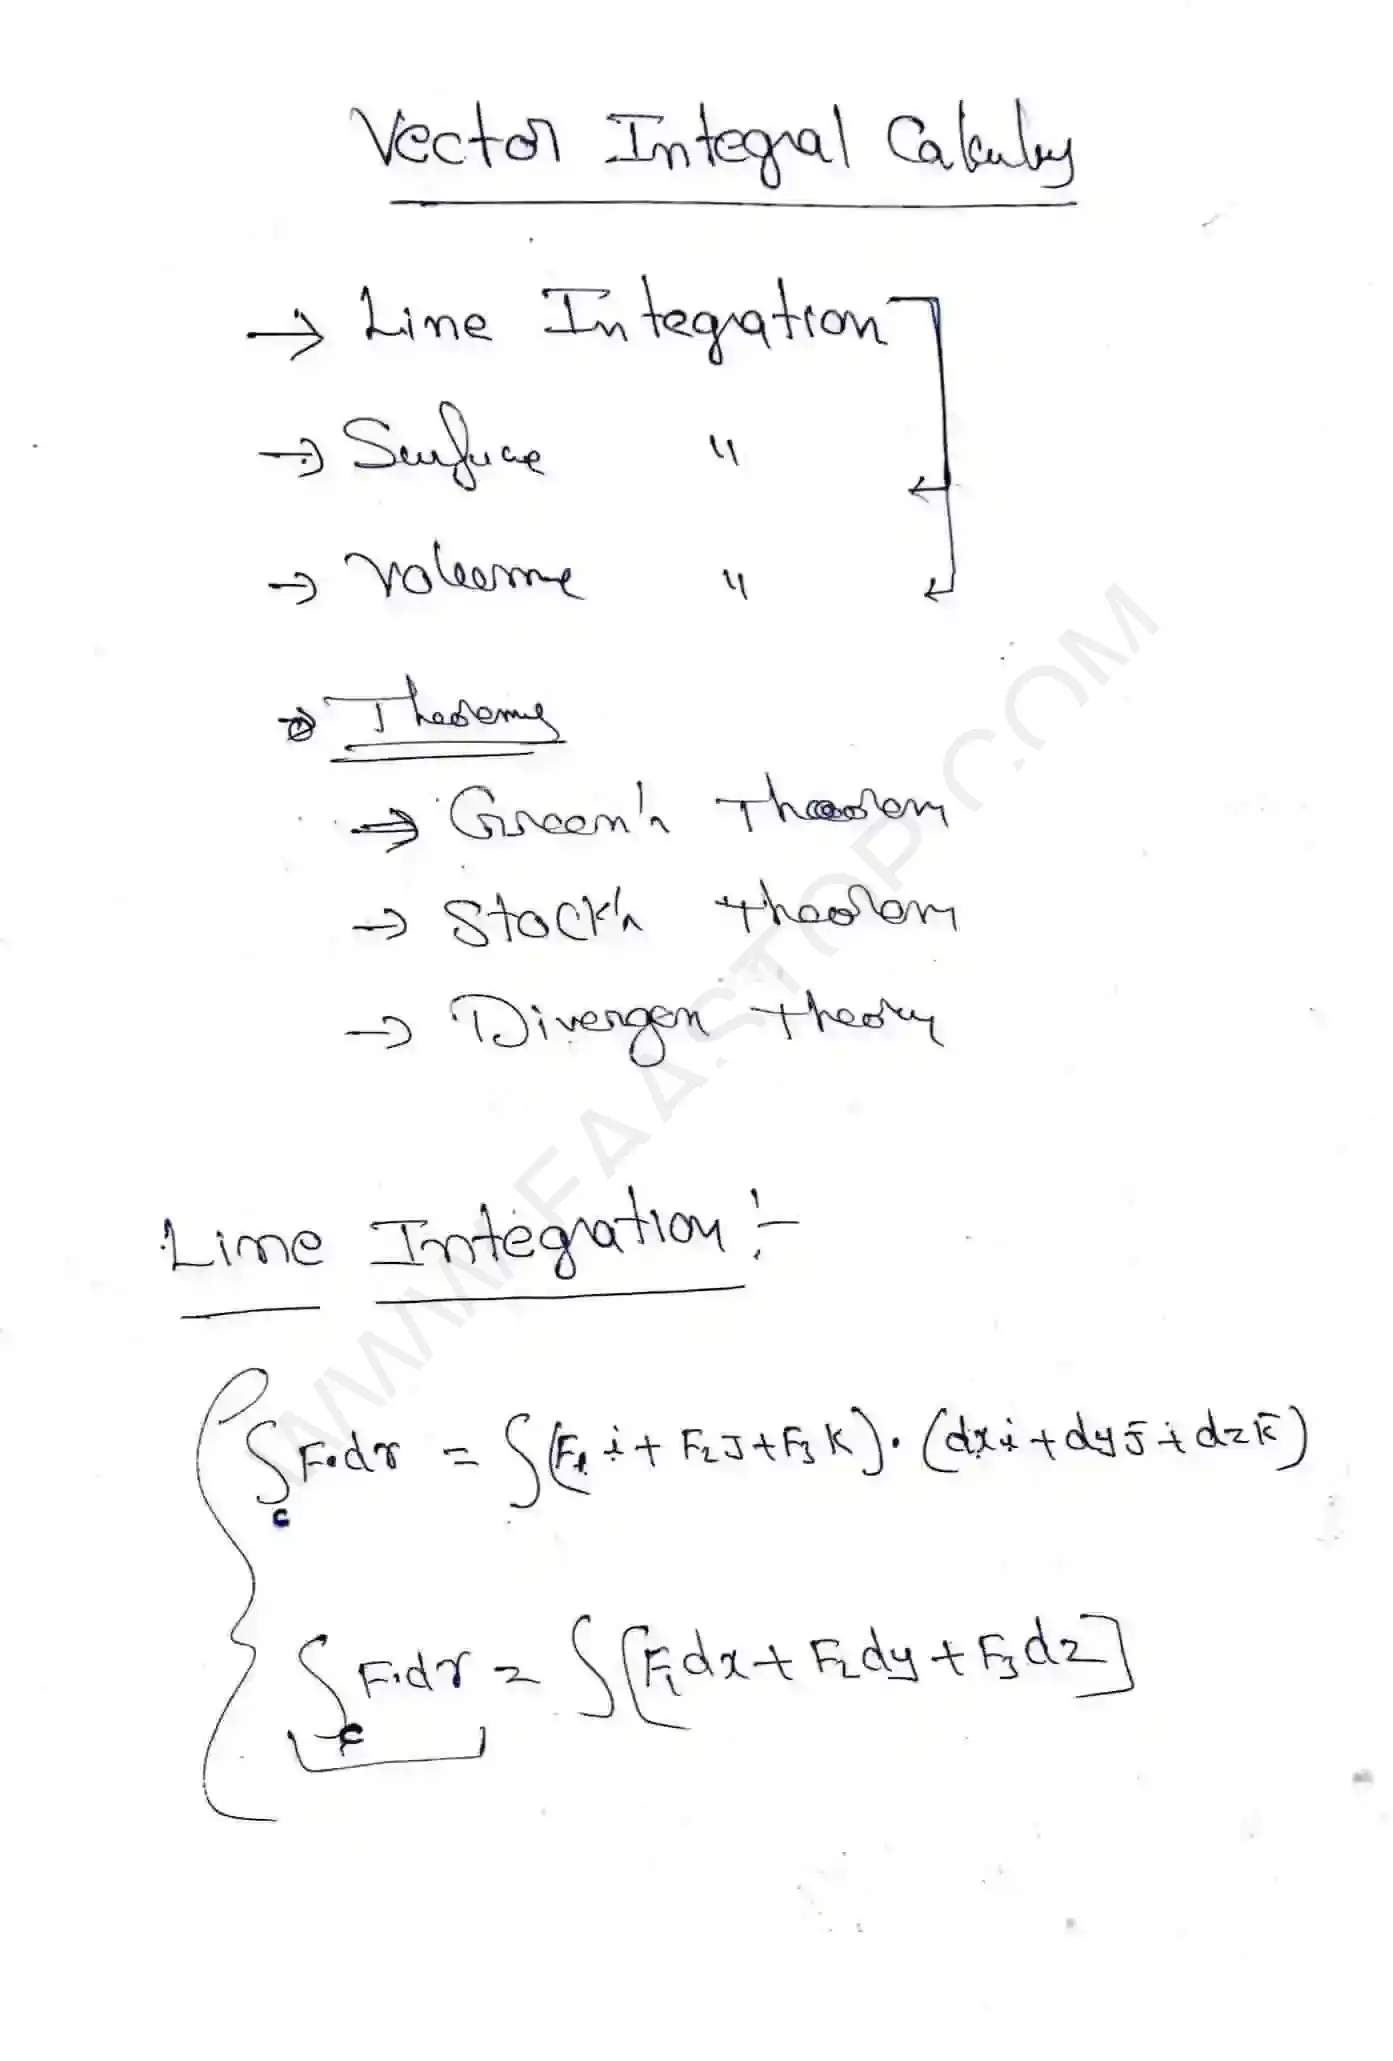 Vector Integral Calculus
→ Line Integration
→ Surface "
→ Volume "
→ Theorems
→ Green's Theorem
→ Stock's theorem
→ Divergen theory
Line Integration :-
∫c F.dr = ∫(F1 i + F2 J + F3 K) . (dx i + dy j̄ + dz k̄)
∫c F.dr = ∫[F1 dx + F2 dy + F3 dz]
WWW.FAASTOP.COM